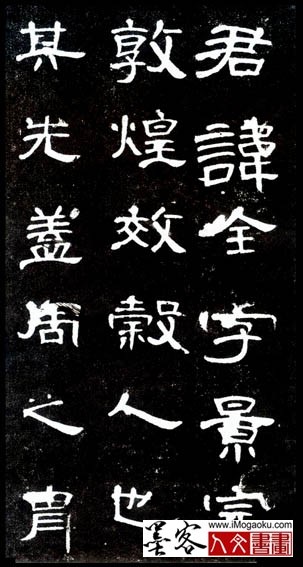 君諱全字景完
敦煌效穀人也
其先蓋周之胄
墨客
www.iMogaoku.com
人文書畫